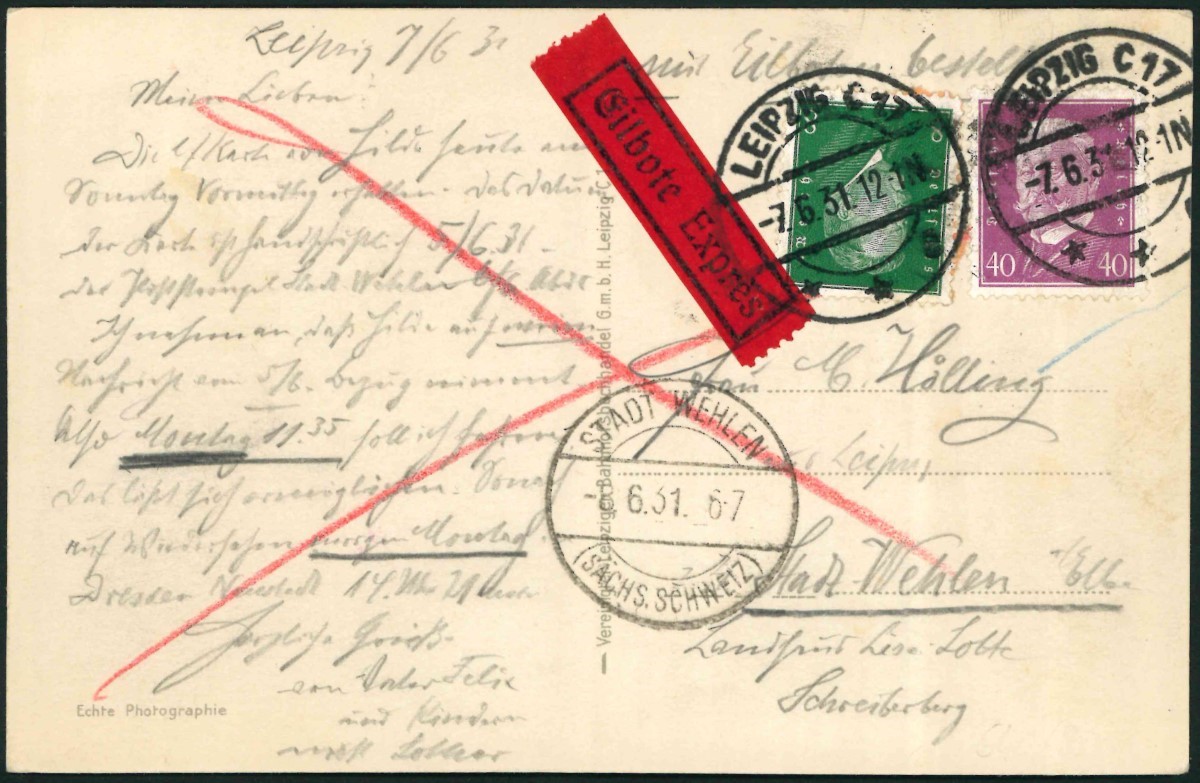 Leipzig 7/6 31
Meine Lieben!
Die Karte von Hilde heute am
Sonntag Vormittag erhalten. Das Datum
der Karte ist handschriftlich 5/6.31
der Poststempel Stadt Wehlen
Ich nehme an, daß Hilde auf
Nachricht vom 5/6. Bezug nimmt
Also Montag 11.35 soll ich fahren
Das läßt sich ermöglichen. Sonach
auf Wiedersehen morgen Montag
Dresden Neustadt 14. Uhr 21
Herzliche Grüße
von Vater Felix
und Kindern
nebst
Echte Photographie
Leipziger Bahnhofsbuchhandel G.m.b.H. Leipzig C 1
mit Eilboten bestellen
Eilbote Exprès
LEIPZIG C 17
-7.6.31.12-1N
LEIPZIG C 17
-7.6.31.12-1N
40 40
Frau M. Hölling
STADT WEHLEN
6.31. 6-7
(SÄCHS. SCHWEIZ)
Stadt Wehlen Elbe
Landhaus Liese-Lotte
Schreiberberg